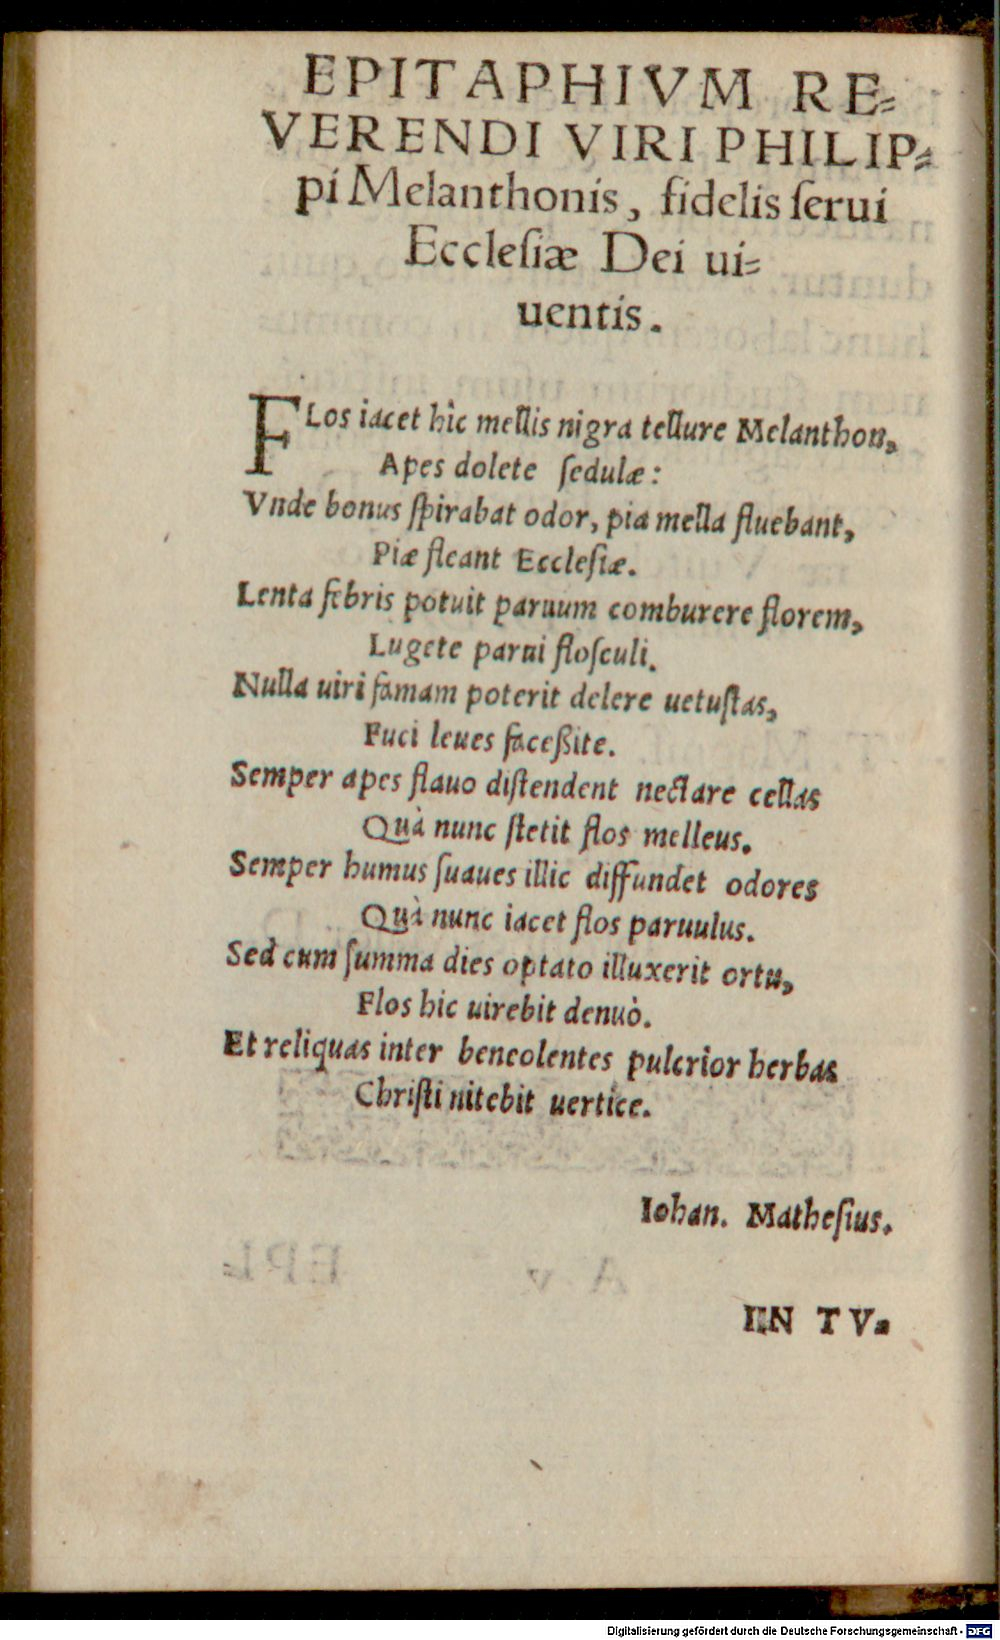 EPITAPHIVM RE-
VERENDI VIRI PHILIP-
pi Melanthonis, fidelis ſerui
Eccleſiæ Dei ui-
uentis.
FLos iacet hic mellis nigra tellure Melanthon,
Apes dolete ſedulæ:
Vnde bonus ſpirabat odor, pia mella fluebant,
Piæ fleant Eccleſiæ.
Lenta febris potuit paruum comburere florem,
Lugete parui floſculi.
Nulla uiri famam poterit delere uetuſtas,
Fuci leues faceßite.
Semper apes flauo diſtendent nectare cellas
Quà nunc ſtetit flos melleus.
Semper humus ſuaues illic diffundet odores
Quà nunc iacet flos paruulus.
Sed cum ſumma dies optato illuxerit ortu,
Flos hic uirebit denuò.
Et reliquas inter beneolentes pulcrior herbas
Chriſti nitebit uertice.
Iohan. Matheſius.
IN TV-
Digitalisierung gefördert durch die Deutsche Forschungsgemeinschaft - DFG